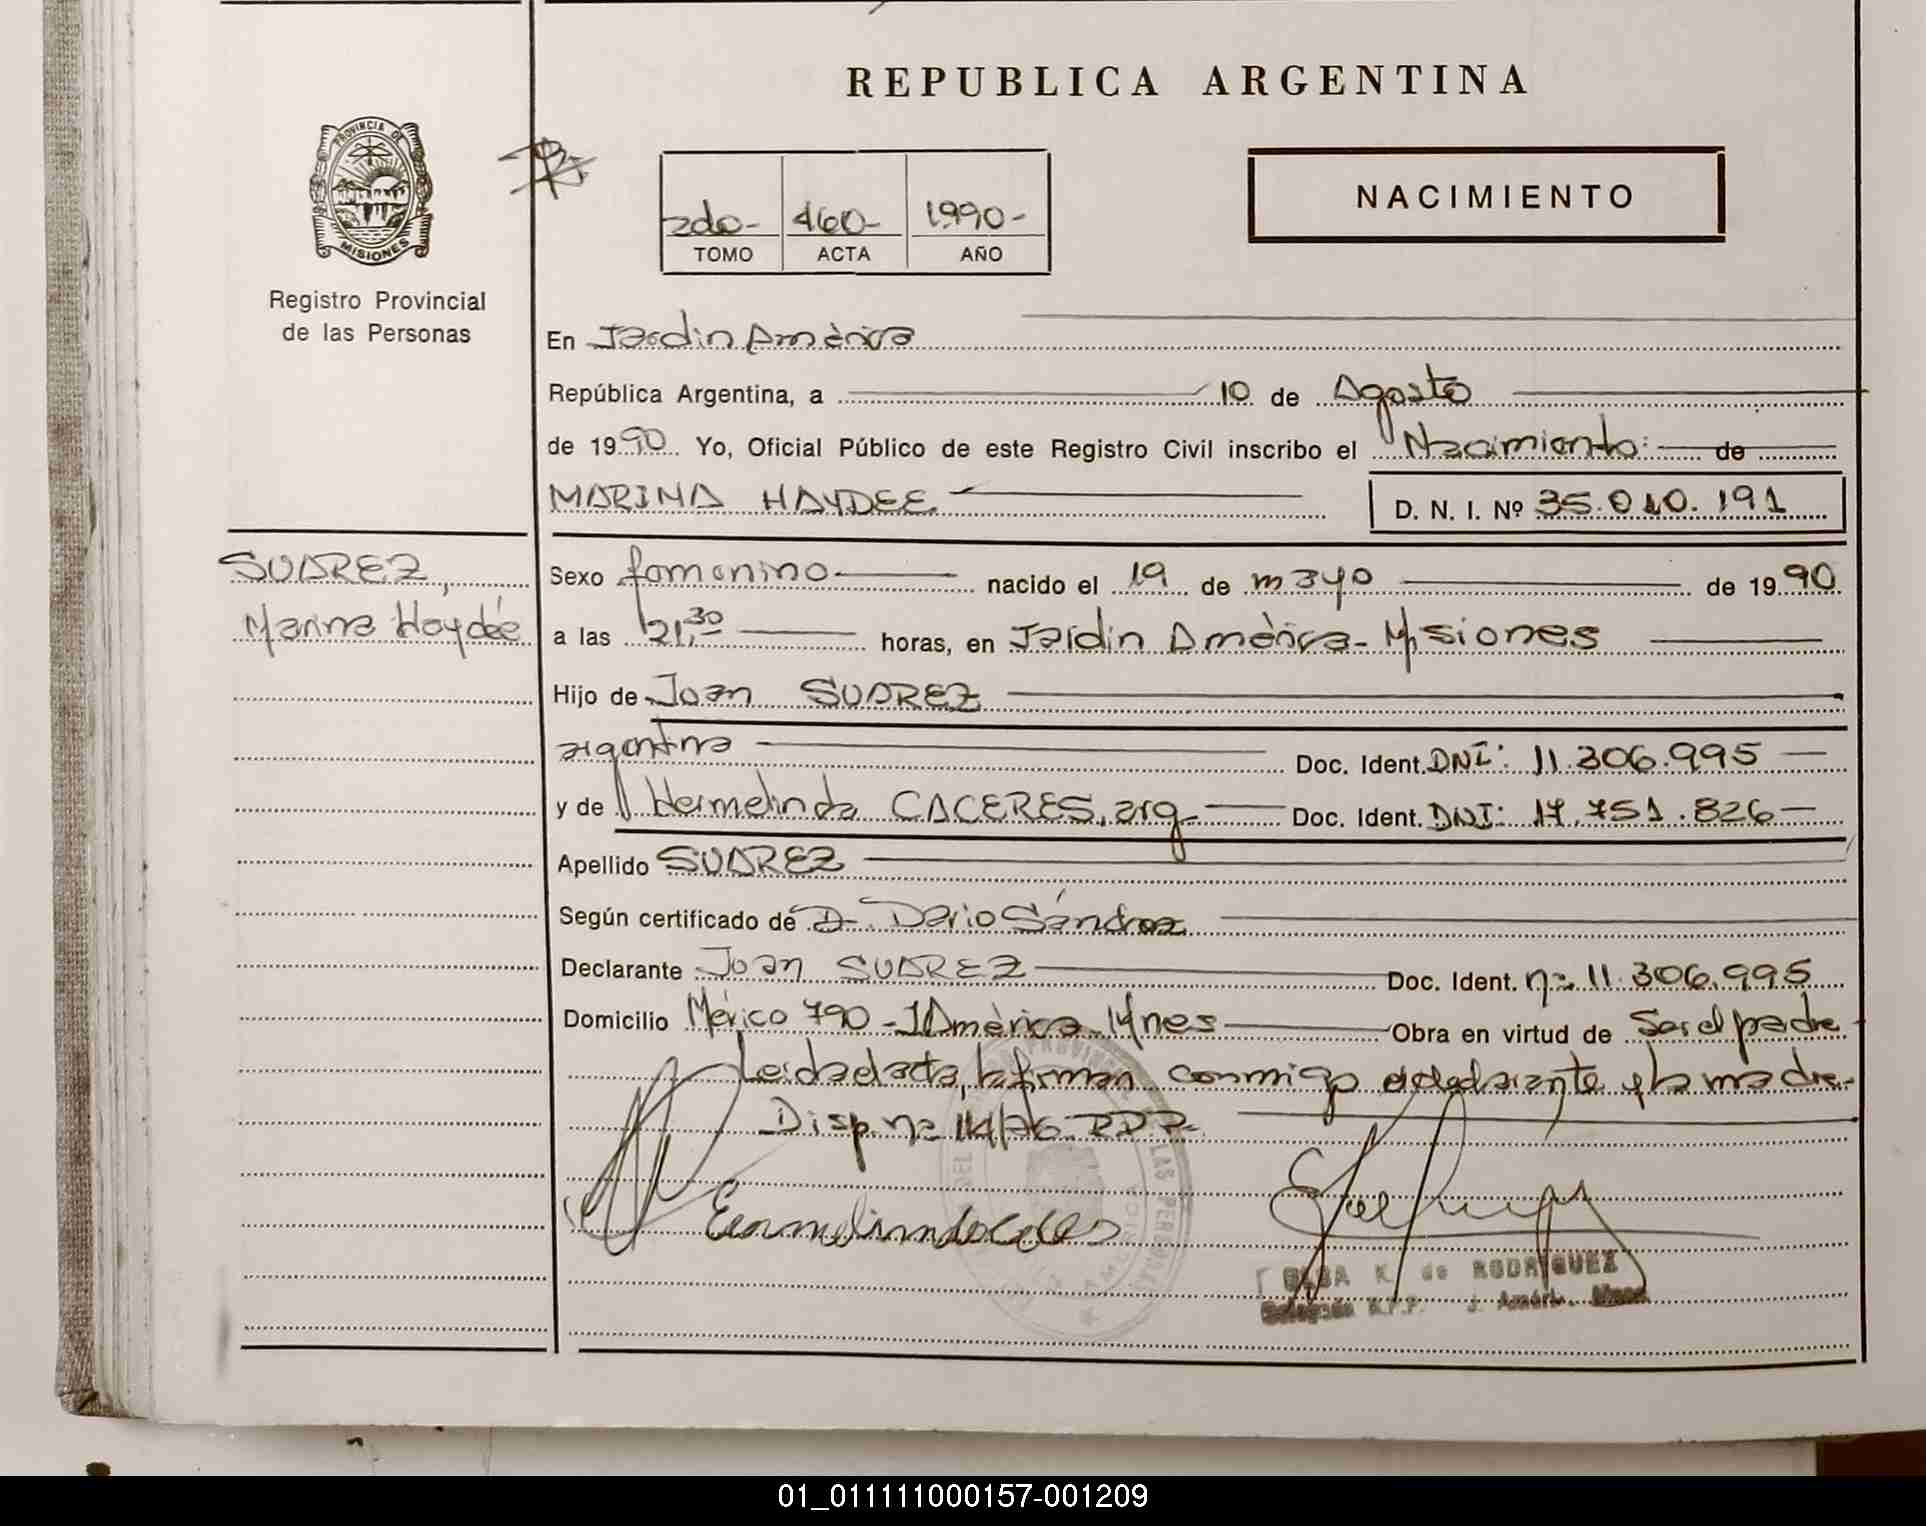 REPUBLICA ARGENTINA
PROVINCIA DE
MISIONES
Registro Provincial
de las Personas
2do- 460- 1990-
TOMO ACTA AÑO
NACIMIENTO
En Jardin América
República Argentina, a 10 de Agosto
de 1990 Yo, Oficial Público de este Registro Civil inscribo el Nacimiento: de
MARINA HAYDEE D. N. I. Nº 35.010.191
SUAREZ,
Marina Haydée
Sexo femenino nacido el 19 de mayo de 1990
a las 21,30 horas, en Jardin América- Misiones
Hijo de Juan SUAREZ
argentina Doc. Ident. DNI: 11.306.995
y de Hermelinda CACERES, arg Doc. Ident. DNI: 17.751.826
Apellido SUAREZ
Según certificado de D. Dario Sánchez
Declarante Juan SUAREZ Doc. Ident. nº 11.306.995
Domicilio México 790 - J América Mnes Obra en virtud de Ser el padre
Leida el acta, la firman conmigo el declarante y la madre-
Disp. nº 114/76 RPP-
K. de RODRIGUEZ
Delegación R.P.P. J. Améri. Mnes
01_011111000157-001209